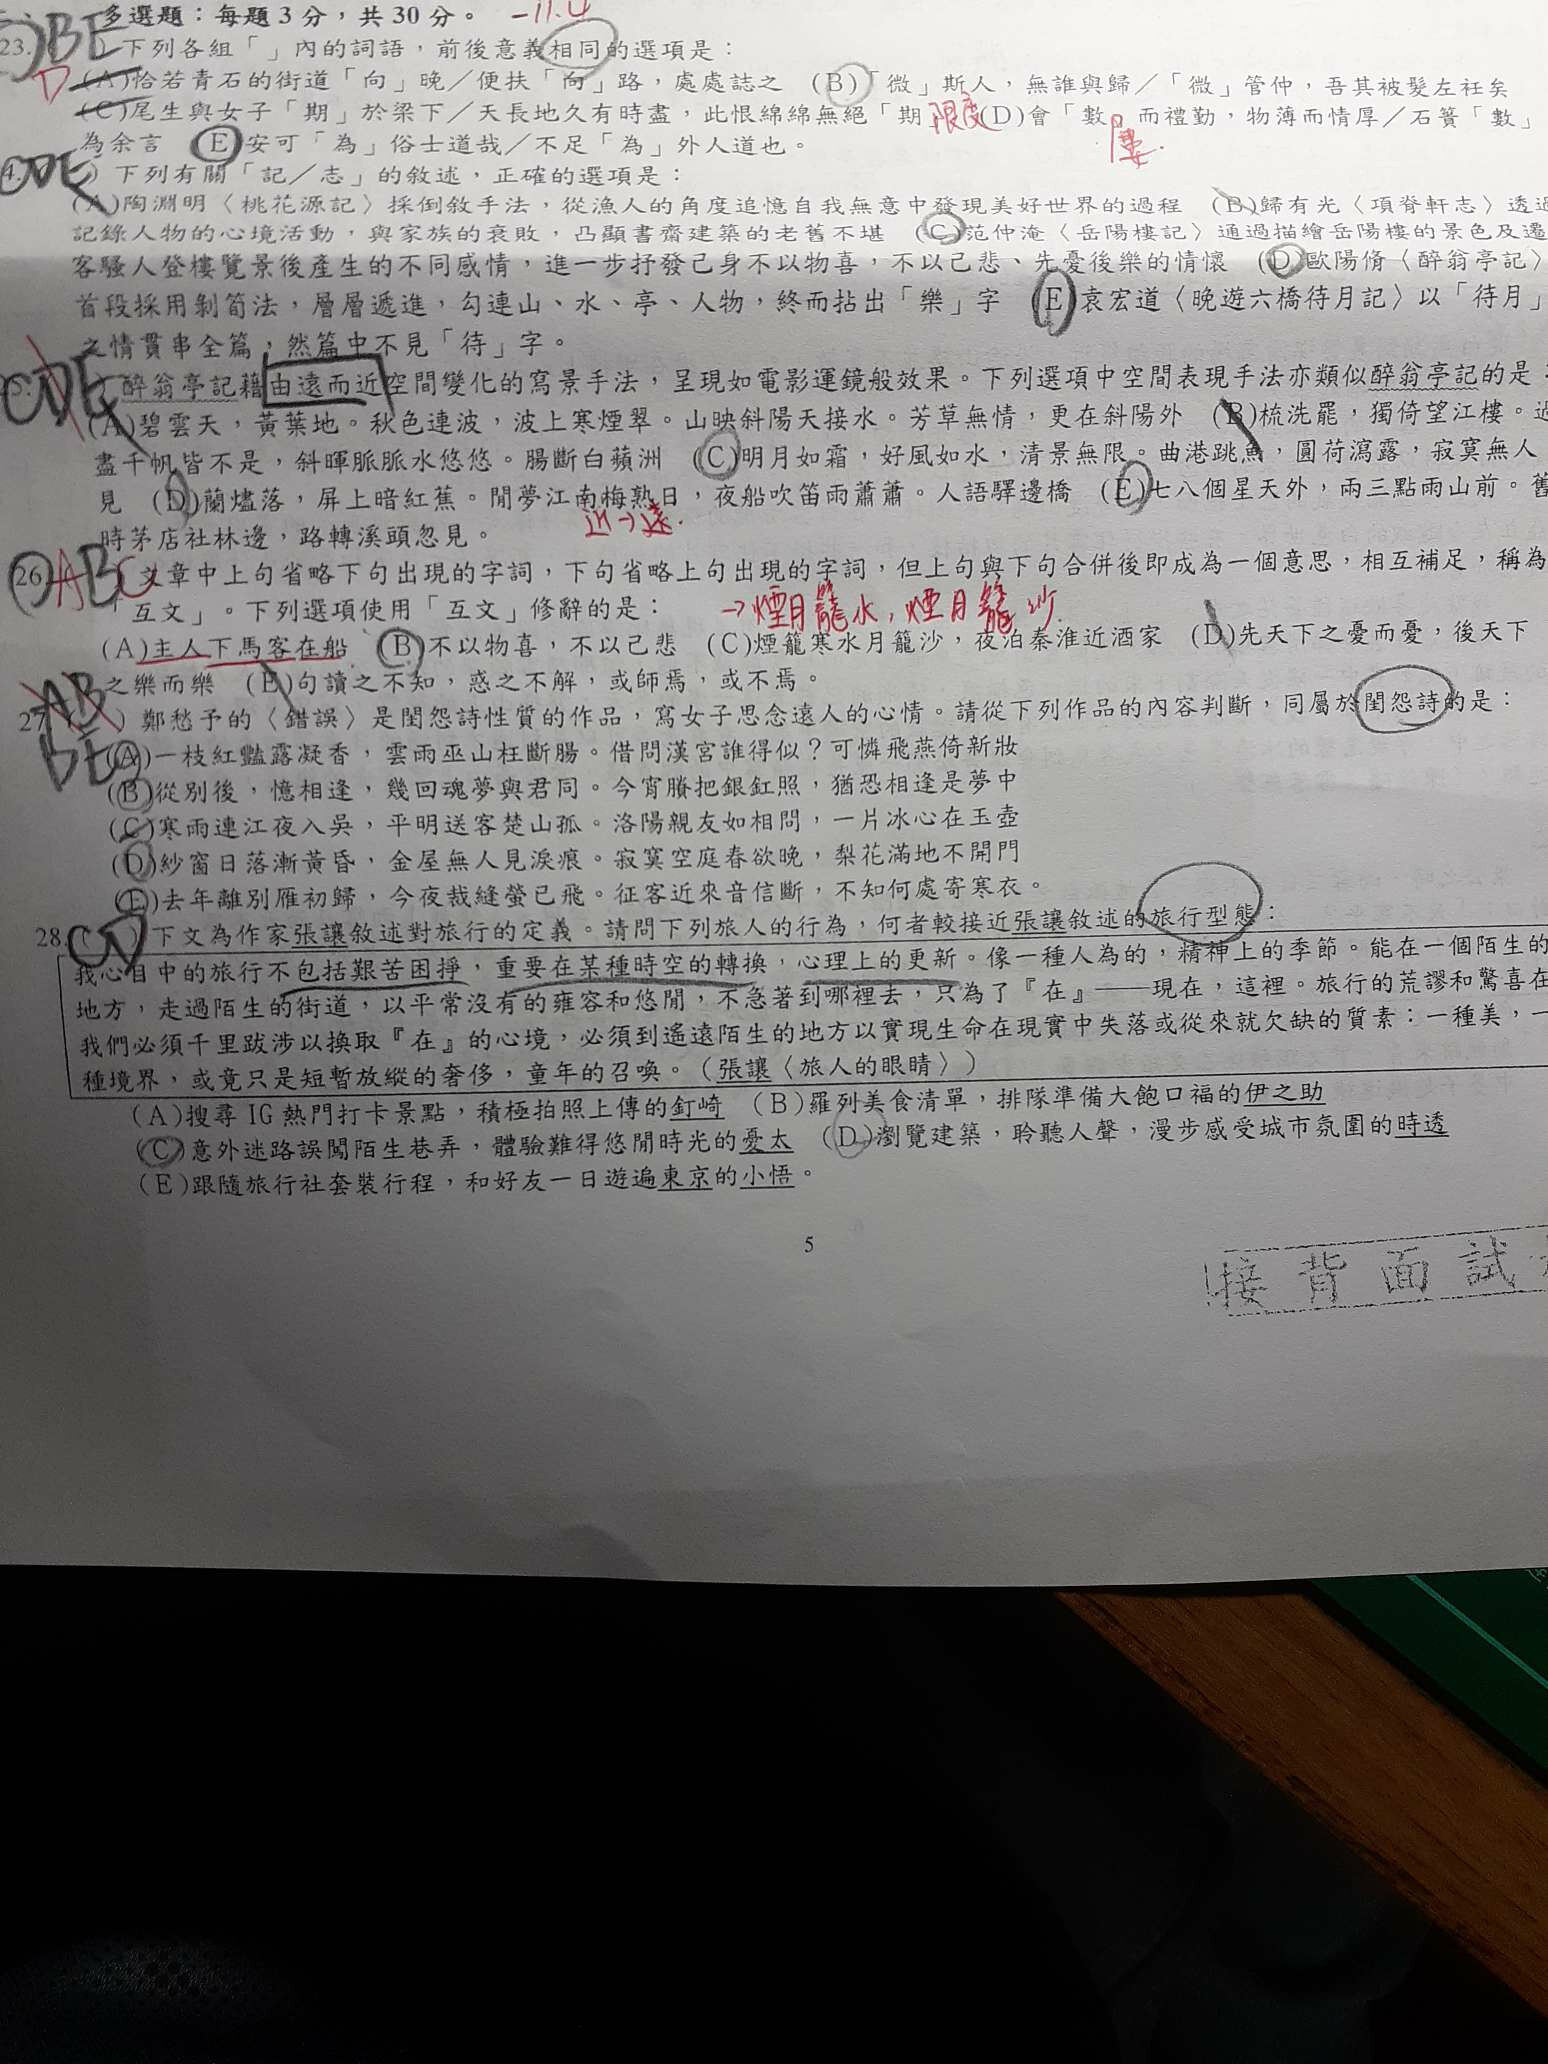 多選題：每題3分，共30分。 -11.4
23. BE )下列各組「」內的詞語，前後意義相同的選項是：
D (A)恰若青石的街道「向」晚／便扶「向」路，處處誌之 (B)「微」斯人，無誰與歸／「微」管仲，吾其被髮左衽矣
(C)尾生與女子「期」於梁下／天長地久有時盡，此恨綿綿無絕「期 限度 (D)會「數」而禮勤，物薄而情厚／石簣「數」
為余言 (E)安可「為」俗士道哉／不足「為」外人道也。 屢
4. CDE )下列有關「記／志」的敘述，正確的選項是：
(A)陶淵明〈桃花源記〉採倒敘手法，從漁人的角度追憶自我無意中發現美好世界的過程 (B)歸有光〈項脊軒志〉透過
記錄人物的心境活動，與家族的衰敗，凸顯書齋建築的老舊不堪 (C)范仲淹〈岳陽樓記〉通過描繪岳陽樓的景色及遷
客騷人登樓覽景後產生的不同感情，進一步抒發己身不以物喜，不以己悲、先憂後樂的情懷 (D)歐陽脩〈醉翁亭記〉
首段採用剝筍法，層層遞進，勾連山、水、亭、人物，終而拈出「樂」字 (E)袁宏道〈晚遊六橋待月記〉以「待月」
之情貫串全篇，然篇中不見「待」字。
25. CDE )醉翁亭記藉由遠而近空間變化的寫景手法，呈現如電影運鏡般效果。下列選項中空間表現手法亦類似醉翁亭記的是：
(A)碧雲天，黃葉地。秋色連波，波上寒煙翠。山映斜陽天接水。芳草無情，更在斜陽外 (B)梳洗罷，獨倚望江樓。過
盡千帆皆不是，斜暉脈脈水悠悠。腸斷白蘋洲 (C)明月如霜，好風如水，清景無限。曲港跳魚，圓荷瀉露，寂寞無人
見 (D)蘭燼落，屏上暗紅蕉。閒夢江南梅熟日，夜船吹笛雨蕭蕭。人語驛邊橋 (E)七八個星天外，兩三點雨山前。舊
時茅店社林邊，路轉溪頭忽見。 近→遠.
26. ABC 文章中上句省略下句出現的字詞，下句省略上句出現的字詞，但上句與下句合併後即成為一個意思，相互補足，稱為
「互文」。下列選項使用「互文」修辭的是： →煙月籠水，煙月籠沙
(A)主人下馬客在船 (B)不以物喜，不以己悲 (C)煙籠寒水月籠沙，夜泊秦淮近酒家 (D)先天下之憂而憂，後天下
之樂而樂 (E)句讀之不知，惑之不解，或師焉，或不焉。
AB
27. ( )鄭愁予的〈錯誤〉是閨怨詩性質的作品，寫女子思念遠人的心情。請從下列作品的內容判斷，同屬於閨怨詩的是：
(A)一枝紅豔露凝香，雲雨巫山枉斷腸。借問漢宮誰得似？可憐飛燕倚新妝
(B)從別後，憶相逢，幾回魂夢與君同。今宵賸把銀釭照，猶恐相逢是夢中
(C)寒雨連江夜入吳，平明送客楚山孤。洛陽親友如相問，一片冰心在玉壺
(D)紗窗日落漸黃昏，金屋無人見淚痕。寂寞空庭春欲晚，梨花滿地不開門
(E)去年離別雁初歸，今夜裁縫螢已飛。征客近來音信斷，不知何處寄寒衣。
28. CD )下文為作家張讓敘述對旅行的定義。請問下列旅人的行為，何者較接近張讓敘述的旅行型態：
我心目中的旅行不包括艱苦困掙，重要在某種時空的轉換，心理上的更新。像一種人為的，精神上的季節。能在一個陌生的
地方，走過陌生的街道，以平常沒有的雍容和悠閒，不急著到哪裡去，只為了『在』——現在，這裡。旅行的荒謬和驚喜在
我們必須千里跋涉以換取『在』的心境，必須到遙遠陌生的地方以實現生命在現實中失落或從來就欠缺的質素：一種美，一
種境界，或竟只是短暫放縱的奢侈，童年的召喚。（張讓〈旅人的眼睛〉）
(A)搜尋IG熱門打卡景點，積極拍照上傳的釘崎 (B)羅列美食清單，排隊準備大飽口福的伊之助
(C)意外迷路誤闖陌生巷弄，體驗難得悠閒時光的憂太 (D)瀏覽建築，聆聽人聲，漫步感受城市氛圍的時透
(E)跟隨旅行社套裝行程，和好友一日遊遍東京的小悟。
5
接背面試